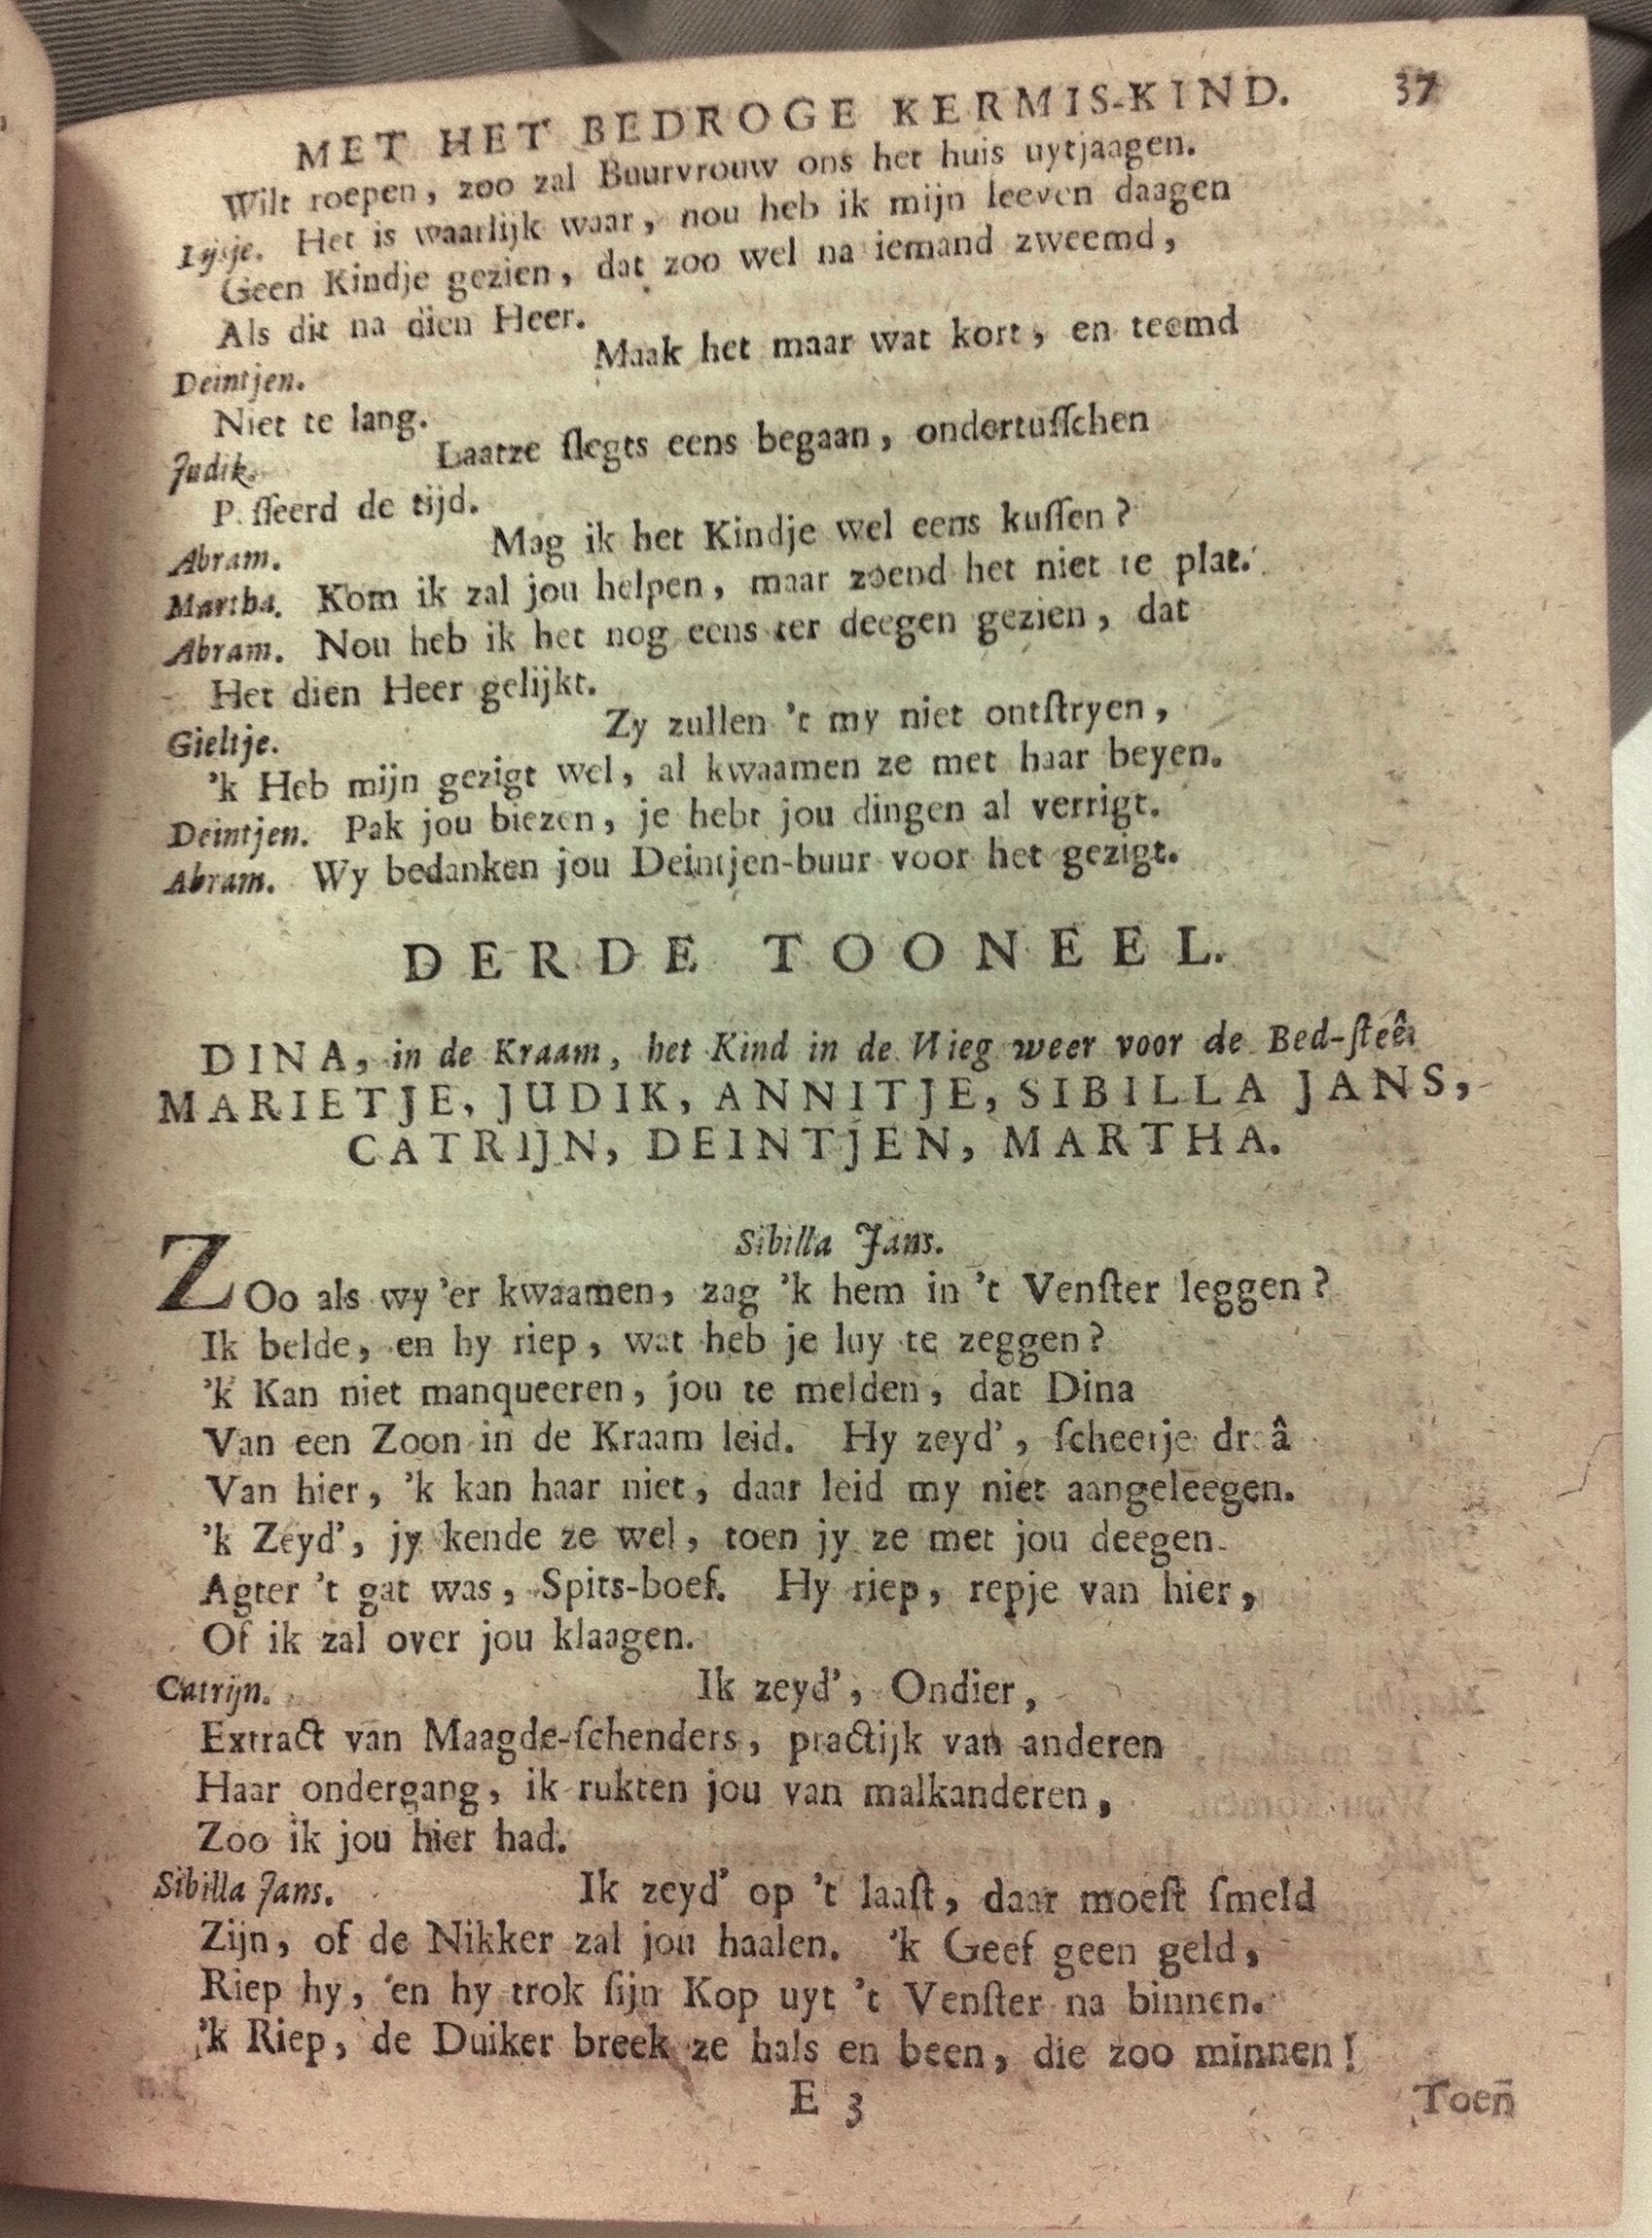 MET HET BEDROGE KERMIS-KIND. 37
Wilt roepen, zoo zal Buurvrouw ons het huis uytjaagen.
Lysje. Het is waarlijk waar, nou heb ik mijn leeven daagen
Geen Kindje gezien, dat zoo wel na iemand zweemd,
Als dit na dien Heer.
Maak het maar wat kort, en teemd
Deintjen.
Niet te lang.
Laatze ſlegts eens begaan, ondertuſſchen
Judik.
P. ſſeerd de tijd.
Mag ik het Kindje wel eens kuſſen?
Abram.
Martha. Kom ik zal jou helpen, maar zoend het niet te plat.
Abram. Nou heb ik het nog eens ter deegen gezien, dat
Het dien Heer gelijkt.
Zy zullen 't my niet ontſtryen,
Gieltje.
'k Heb mijn gezigt wel, al kwaamen ze met haar beyen.
Deintjen. Pak jou biezen, je hebt jou dingen al verrigt.
Abram. Wy bedanken jou Deintjen-buur voor het gezigt.
DERDE TOONEEL.
DINA, in de Kraam, het Kind in de Wieg weer voor de Bed-ſteê,
MARIETJE, JUDIK, ANNITJE, SIBILLA JANS,
CATRIJN, DEINTJEN, MARTHA.
Sibilla Jans.
ZOo als wy 'er kwaamen, zag 'k hem in 't Venſter leggen?
Ik belde, en hy riep, wat heb je luy te zeggen?
'k Kan niet manqueeren, jou te melden, dat Dina
Van een Zoon in de Kraam leid. Hy zeyd', ſcheetje dr â
Van hier, 'k kan haar niet, daar leid my niet aangeleegen.
'k Zeyd', jy kende ze wel, toen jy ze met jou deegen
Agter 't gat was, Spits-boef. Hy riep, repje van hier,
Of ik zal over jou klaagen.
Catrijn. Ik zeyd', Ondier,
Extract van Maagde-ſchenders, practijk van anderen
Haar ondergang, ik rukten jou van malkanderen,
Zoo ik jou hier had.
Sibilla Jans. Ik zeyd' op 't laaſt, daar moeſt ſmeld
Zijn, of de Nikker zal jou haalen. 'k Geef geen geld,
Riep hy, en hy trok ſijn Kop uyt 't Venſter na binnen.
'k Riep, de Duiker breek ze hals en been, die zoo minnen!
E 3 Toen